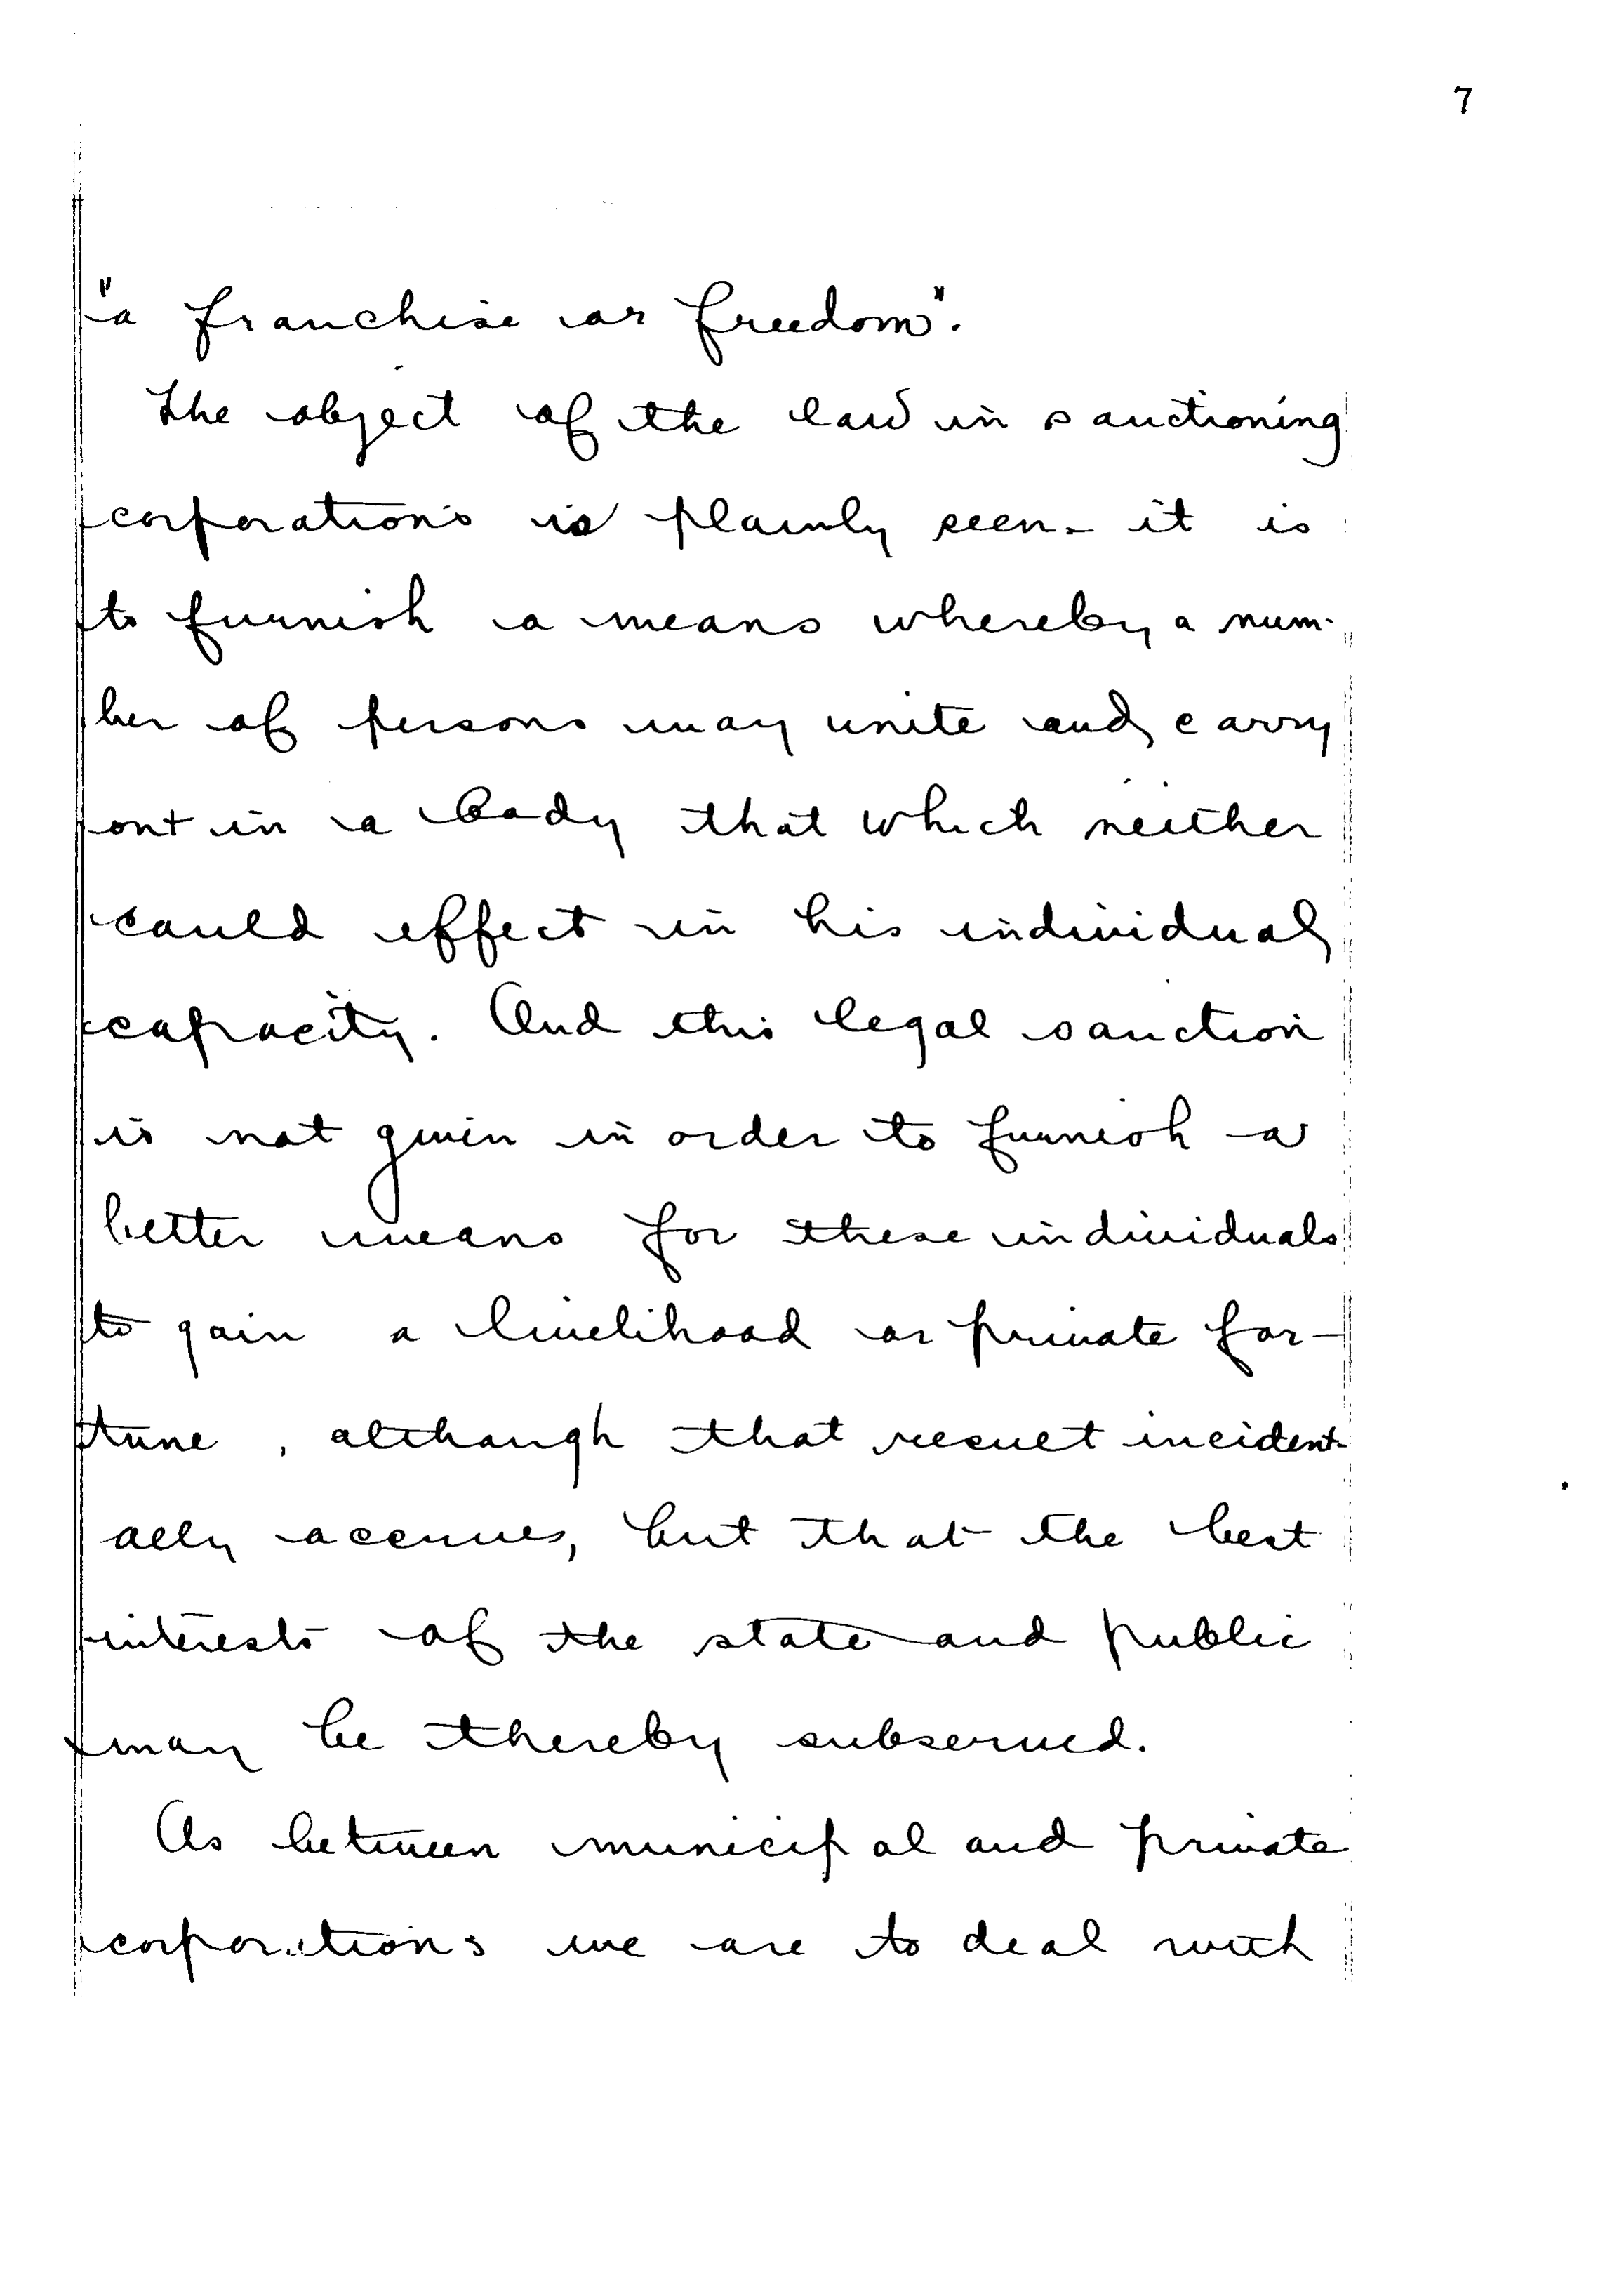 7
"a franchise or freedom".
The object of the law in sanctioning
corporations is plainly seen - it is
to furnish a means whereby a num-
ber of persons may unite and carry
out in a body that which neither
could effect in his individual
capacity. And this legal sanction
is not given in order to furnish a
better means for these individuals
to gain a livelihood or private for-
tune, although that result incident-
ally accrues, but that the best
interests of the state and public
may be thereby subserved.
As between municipal and private
corporations we are to deal with